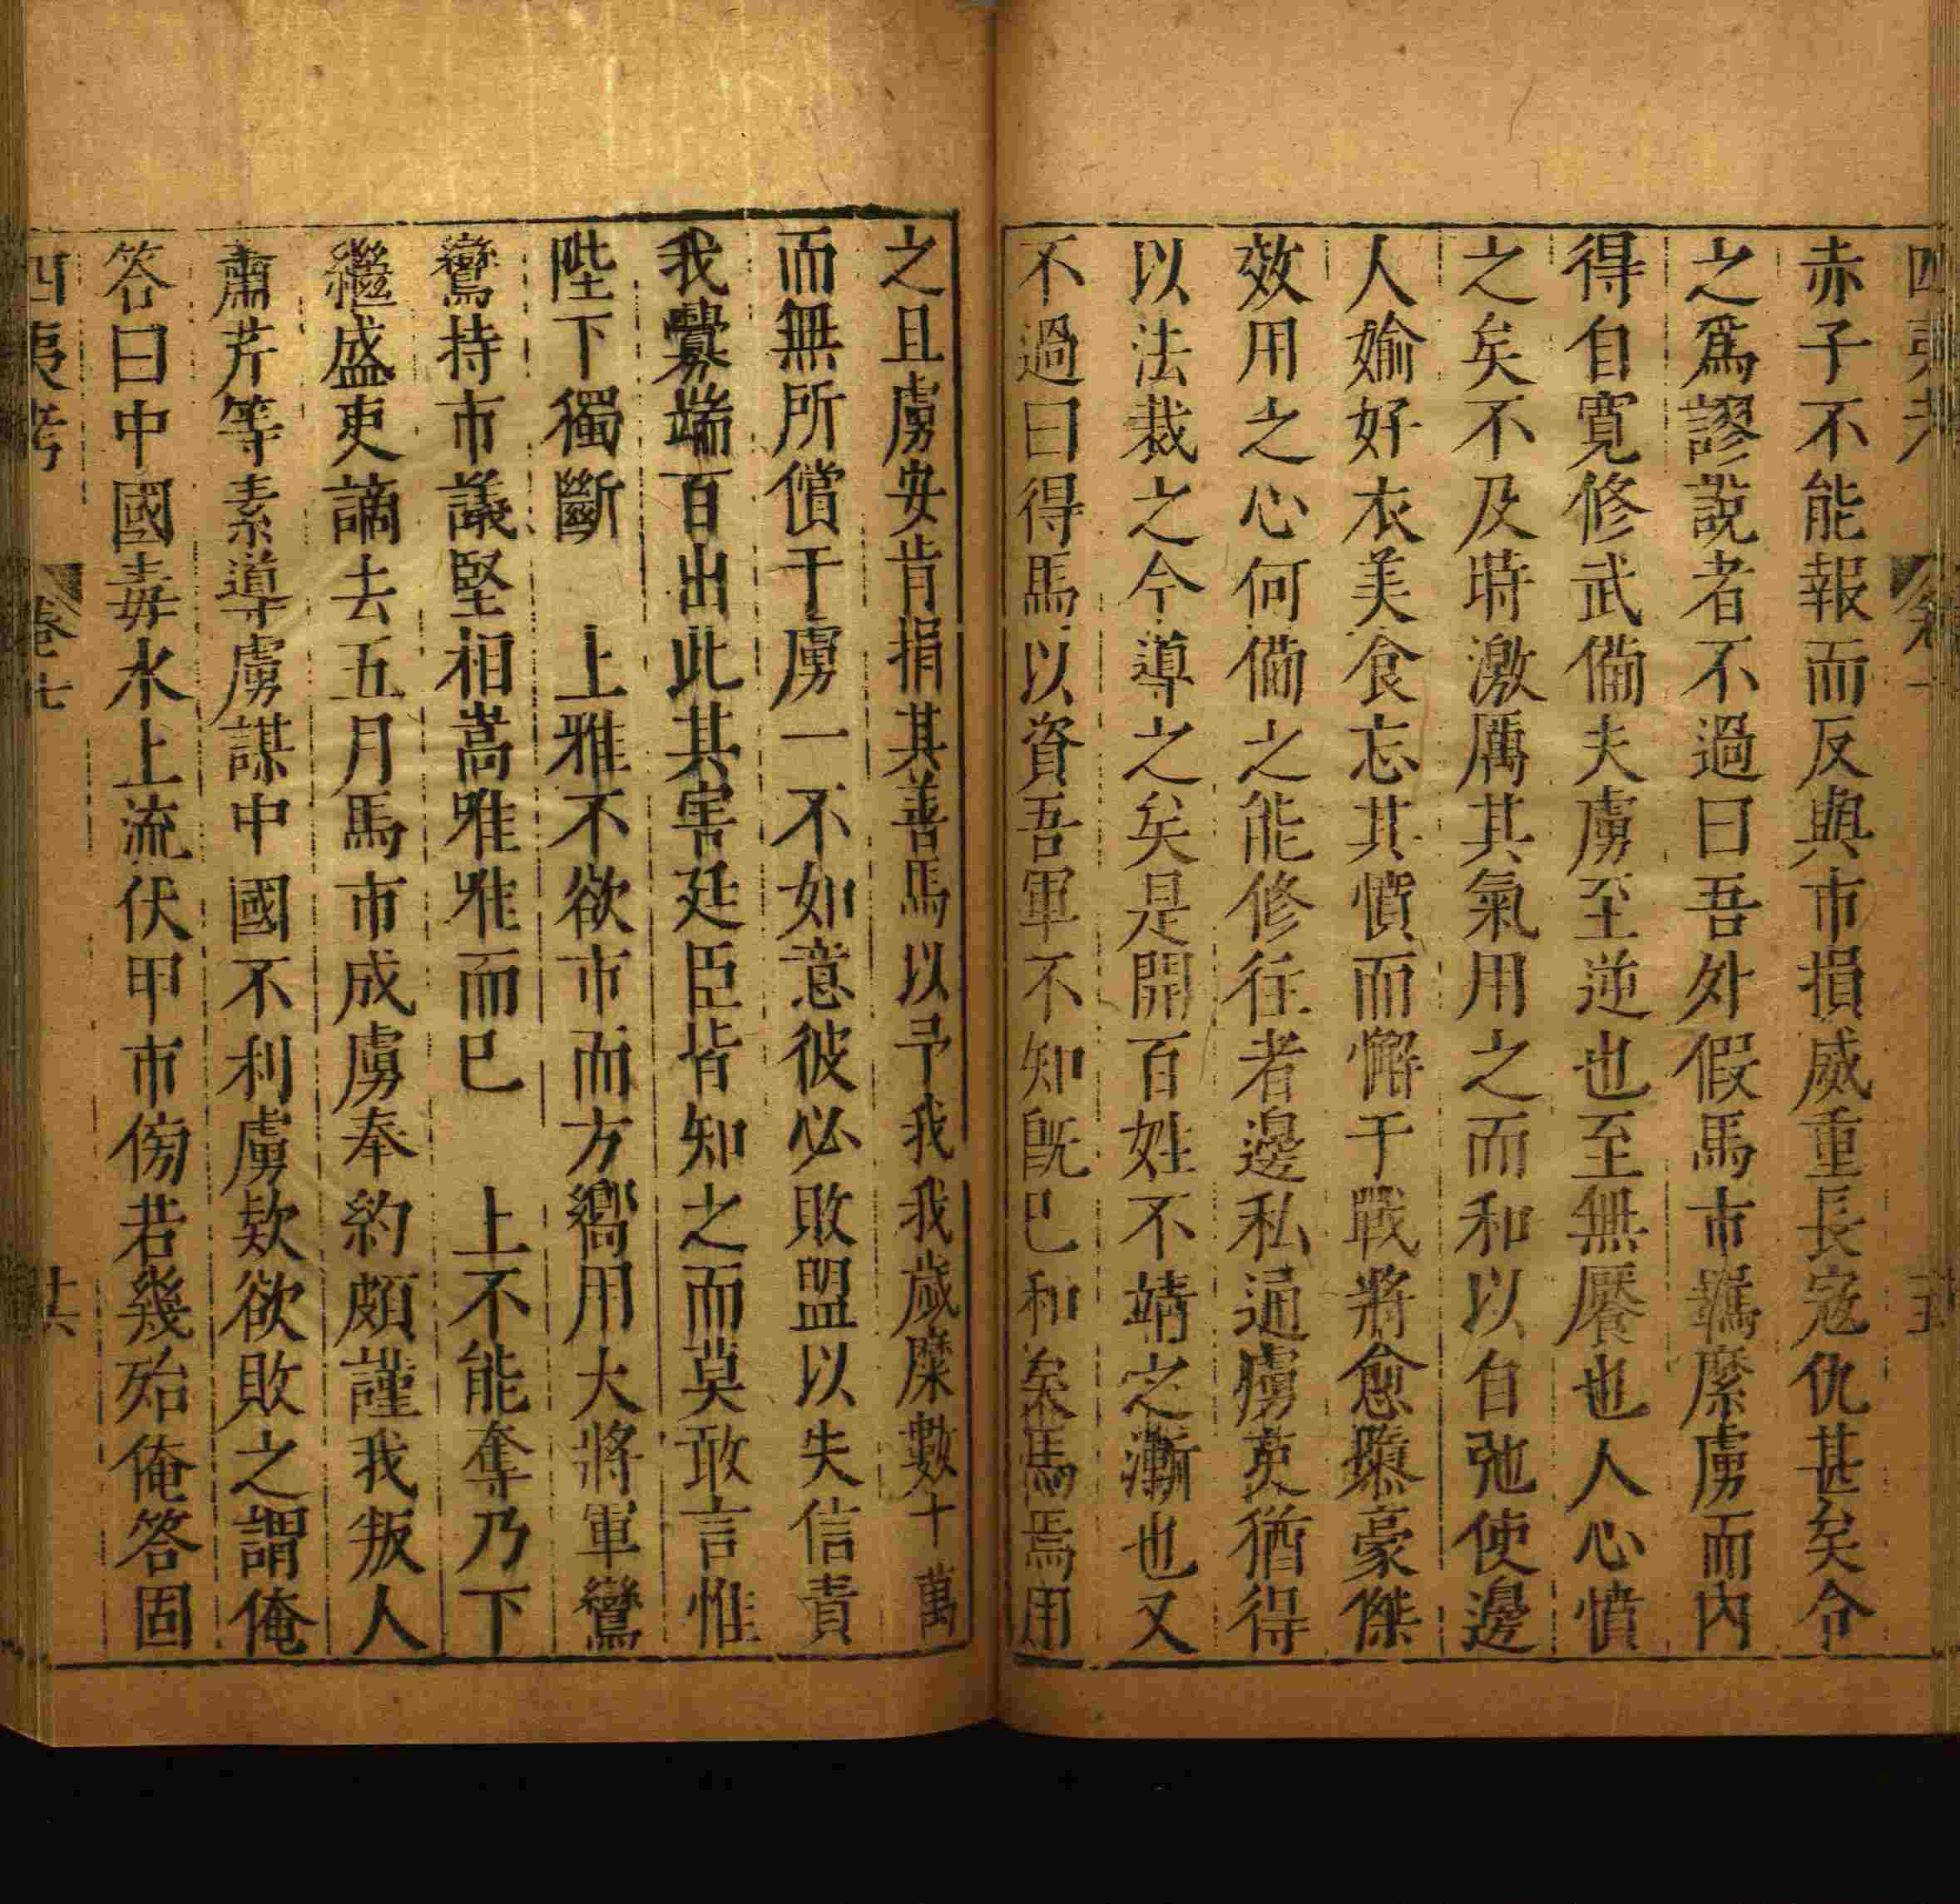 赤子不能報而反與市損威重長寇仇甚矣今
之爲謬說者不過曰吾外假馬市羈縻虜而內
得自寬修武備夫虜至逆也至無厭也人心憤
之矣不及時激厲其氣用之而和以自弛使邊
人媮好衣美食忘其憤而懈于戰將愈隳豪傑
效用之心何備之能修往者邊私通虜英猶得
以法裁之今導之矣是開百姓不靖之漸也又
不過曰得馬以資吾軍不知既已和矣馬焉用
之且虜安肯捐其善馬以予我我歲糜數十萬
而無所償于虜一不如意彼必敗盟以失信責
我釁端百出此其害廷臣皆知之而莫敢言惟
陛下獨斷　上雅不欲市而方嚮用大將軍鸞
鸞持市議堅相嵩唯唯而已　上不能奪乃下
繼盛吏謫去五月馬市成虜奉約頗謹我叛人
蕭芹等素導虜謀中國不利虜欵欲敗之謂俺
答曰中國毒水上流伏甲市傍若幾殆俺答固
四夷考　卷七　廿六